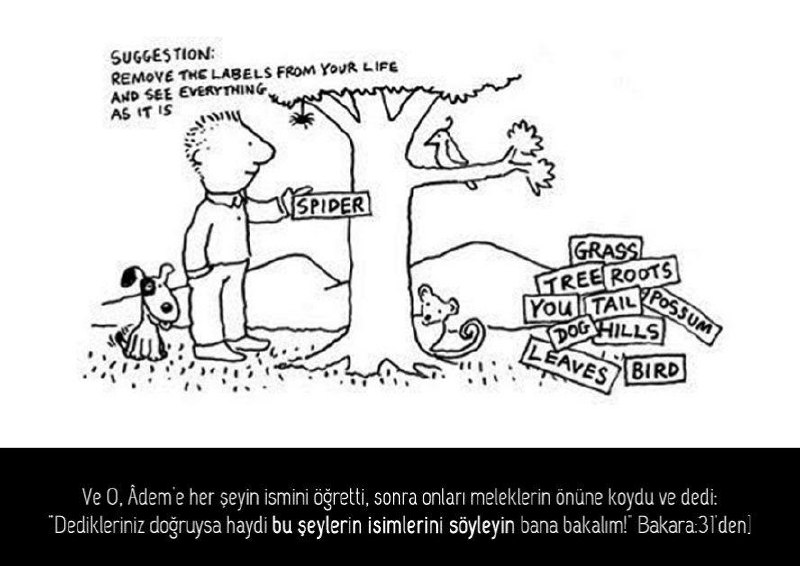 SUGGESTION:
REMOVE THE LABELS FROM YOUR LIFE
AND SEE EVERYTHING
AS IT IS
SPIDER
GRASS
TREE ROOTS
YOU TAIL POSSUM
DOG HILLS
LEAVES BIRD
Ve O, Âdem'e her şeyin ismini öğretti, sonra onları meleklerin önüne koydu ve dedi:
"Dedikleriniz doğruysa haydi bu şeylerin isimlerini söyleyin bana bakalım!" Bakara:31'den]